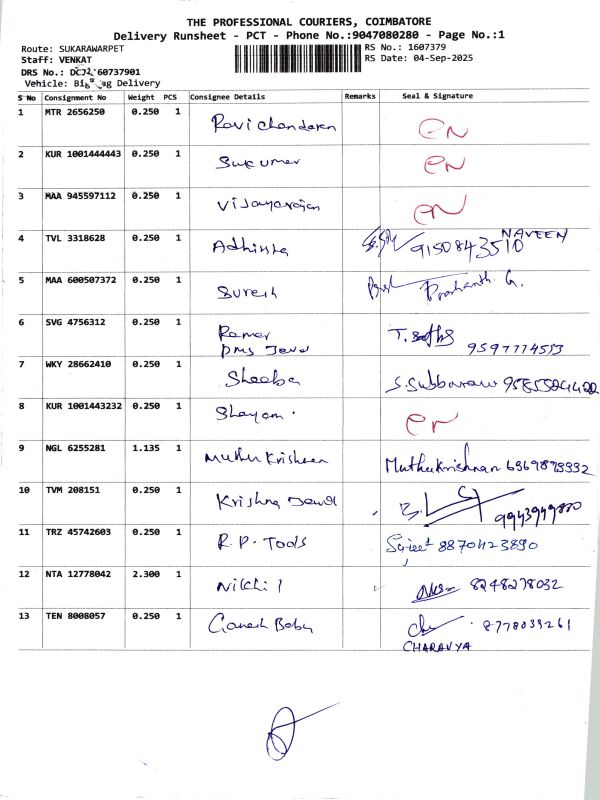 THE PROFESSIONAL COURIERS, COIMBATORE
Delivery Runsheet - PCT - Phone No.:9047080280 - Page No.:1
Route: SUKARAWARPET
RS No.: 1607379
Staff: VENKAT
RS Date: 04-Sep-2025
DRS No.: 60737901
Vehicle: Delivery
S No Consignment No Weight PCS Consignee Details Remarks Seal & Signature
1 MTR 2656250 0.250 1 Ravi chandaran
2 KUR 1001444443 0.250 1 Sukumar
3 MAA 945597112 0.250 1 Vijayarajan
4 TVL 3318628 0.250 1 9150843510 NAVEEN
5 MAA 600507372 0.250 1 Suresh Prashanth. G.
6 SVG 4756312 0.250 1 T.
9597774553
7 WKY 28662410 0.250 1 Sheeba
8 KUR 1001443232 0.250 1 Shayam.
9 NGL 6255281 1.135 1 Muthu Krishnan Muthukrishnan
10 TVM 208151 0.250 1 Krishna
11 TRZ 45742603 0.250 1 R.P. Tools 8870423890
12 NTA 12778042 2.300 1 8248278032
13 TEN 8008057 0.250 1 Ganesh Babu 8778039261
CHARAVYA